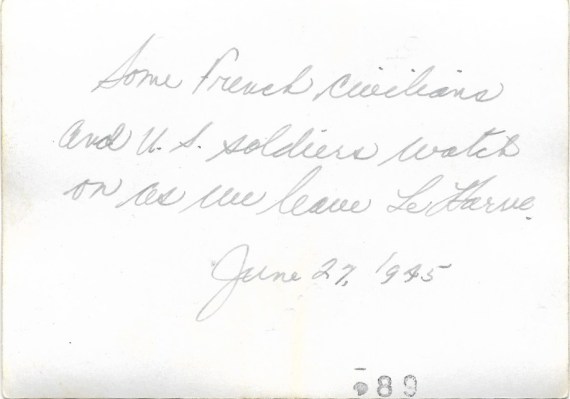 Some French civilians
and U.S. soldiers watch
on as we leave Le Harve.
June 27, 1945
89